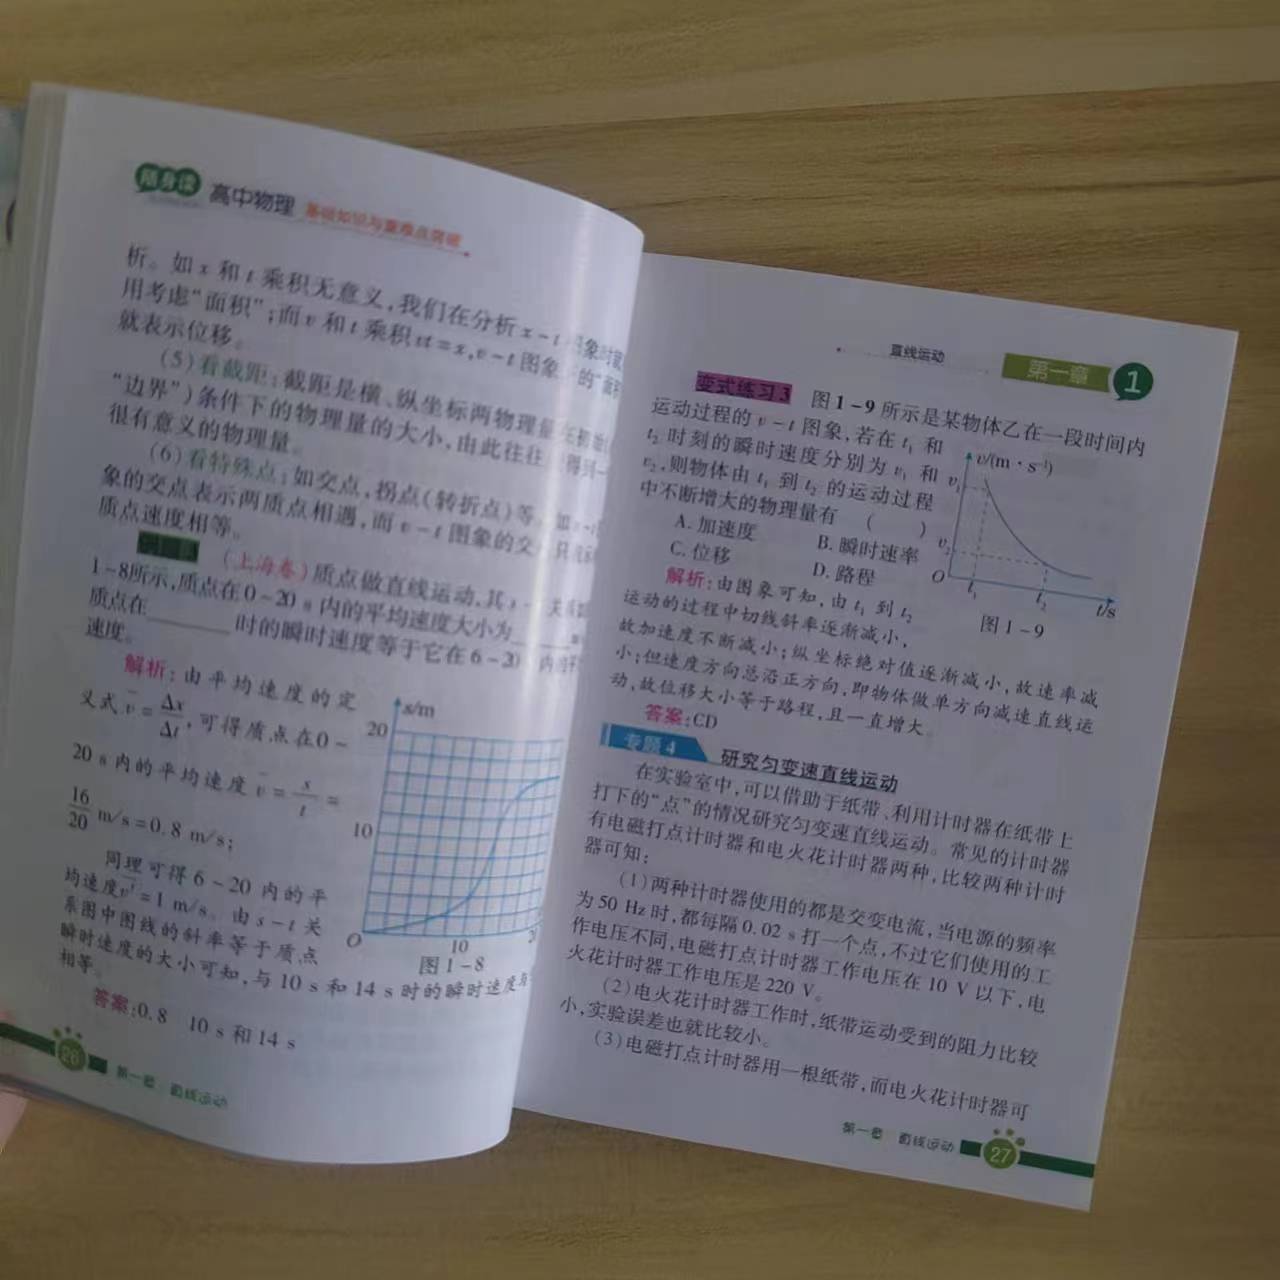 随身读 高中物理 基础知识与重难点突破
析。如 x 和 t 乘积无意义,我们在分析 x-t
用考虑“面积”;而 v 和 t 乘积 vt=x,v-t 图象
就表示位移。
(5)看截距:截距是横、纵坐标两物理量
“边界”)条件下的物理量的大小,由此往往
很有意义的物理量。
(6)看特殊点:如交点,拐点(转折点)等。如 x-t
象的交点表示两质点相遇,而 v-t 图象的交
质点速度相等。
(上海卷)质点做直线运动,其 s-
1-8所示,质点在0~20 s 内的平均速度大小为
质点在 时的瞬时速度等于它在 6~20
速度。
解析:由平均速度的定
义式 v̄=Δx/Δt,可得质点在0~
20 s 内的平均速度 v̄=s/t=
16/20 m/s=0.8 m/s;
同理可得 6~20 内的平
均速度v̄′=1 m/s。由 s-t 关
系图中图线的斜率等于质点
瞬时速度的大小可知,与 10 s 和 14 s 时的瞬时速度与
相等。
s/m
20
10
O
10
图 1-8
答案:0.8 10 s 和 14 s
26 第一章 直线运动
直线运动 第一章 1
变式练习 3 图 1-9 所示是某物体乙在一段时间内
运动过程的 v-t 图象,若在 t₁ 和
t₂ 时刻的瞬时速度分别为 v₁ 和
v₂,则物体由 t₁ 到 t₂ 的运动过程
中不断增大的物理量有 ( )
A. 加速度 B. 瞬时速率
C. 位移 D. 路程
v/(m·s⁻¹)
v₁
v₂
O
t₁ t₂ t/s
图 1-9
解析:由图象可知,由 t₁ 到 t₂
运动的过程中切线斜率逐渐减小,
故加速度不断减小;纵坐标绝对值逐渐减小,故速率减
小;但速度方向总沿正方向,即物体做单方向减速直线运
动,故位移大小等于路程,且一直增大。
答案:CD
专题 4 研究匀变速直线运动
在实验室中,可以借助于纸带、利用计时器在纸带上
打下的“点”的情况研究匀变速直线运动。常见的计时器
有电磁打点计时器和电火花计时器两种,比较两种计时
器可知:
(1)两种计时器使用的都是交变电流,当电源的频率
为 50 Hz 时,都每隔 0.02 s 打一个点,不过它们使用的工
作电压不同,电磁打点计时器工作电压在 10 V 以下,电
火花计时器工作电压是 220 V。
(2)电火花计时器工作时,纸带运动受到的阻力比较
小,实验误差也就比较小。
(3)电磁打点计时器用一根纸带,而电火花计时器可
第一章 直线运动 27